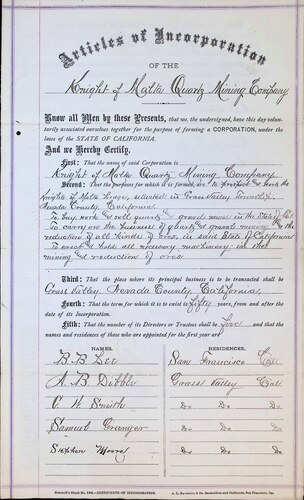 Articles of Incorporation
OF THE
Knight of Malta Quartz Mining Company
Know all Men by these Presents, That we, the undersigned, have this day voluntarily
associated ourselves together for the purpose of forming a CORPORATION, under
the laws of the STATE OF CALIFORNIA.
And we Hereby Certify,
First: That the name of said Corporation is
Knight of Malta Quartz Mining Company
Second: That the purposes for which it is formed, are To prospect & work the
Knights of Malta Ledge, situated in Grass Valley Township
Nevada County California.
To buy work & sell quartz & gravel mines in the State of Cal.
To carry on the business of quartz & gravel mining & the
reduction of all kinds of ores in said State of California
To erect & hold all necessary machinery in the
mining & reduction of ores
Third: That the place where its principal business is to be transacted shall
Grass Valley, Nevada County, California,
Fourth: That the term for which it is to exist is fifty years, from and after the
date of its Incorporation.
Fifth: That the number of its Directors or Trustees shall be five and that the
names and residences of those who are appointed for the first year are
NAMES. RESIDENCES.
B. B. Lee San Francisco Cal
A. B. Dibble Grass Valley Cal
C. W. Smith Do Do Do
Samuel Granger Do Do Do
Stephen Moore Do Do Do